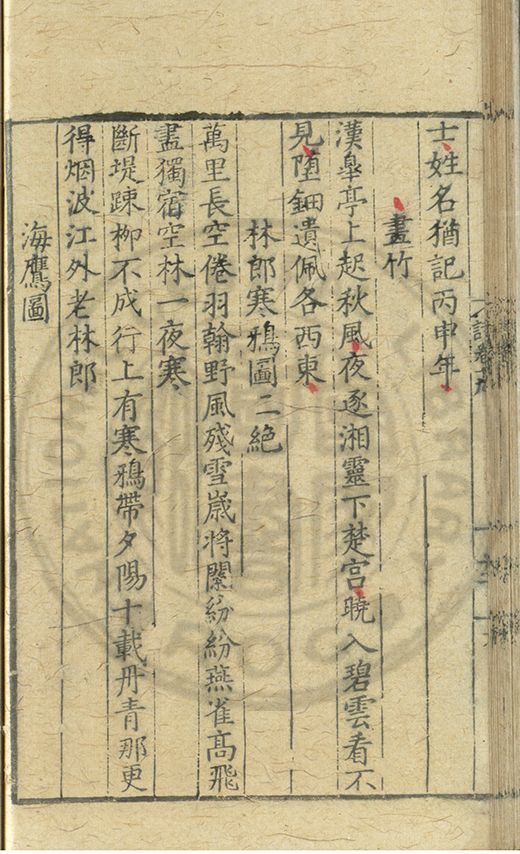 士姓名猶記丙申年
畫竹
漢皋亭上起秋風夜逐湘靈下楚宮曉入碧雲看不
見墮鈿遺佩各西東
林郎寒鴉圖二絕
萬里長空倦羽翰野風殘雪歲將闌紛紛燕雀高飛
盡獨宿空林一夜寒
斷堤踈栁不成行上有寒鴉帶夕陽十載丹青那更
得烟波江外老林郎
海鷹圖